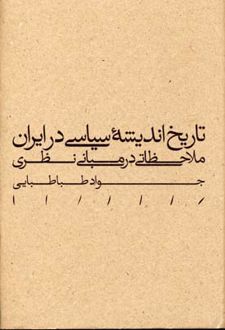 تاریخ اندیشهٔ سیاسی در ایران
ملاحظاتی در مبانی نظری
جواد طباطبایی